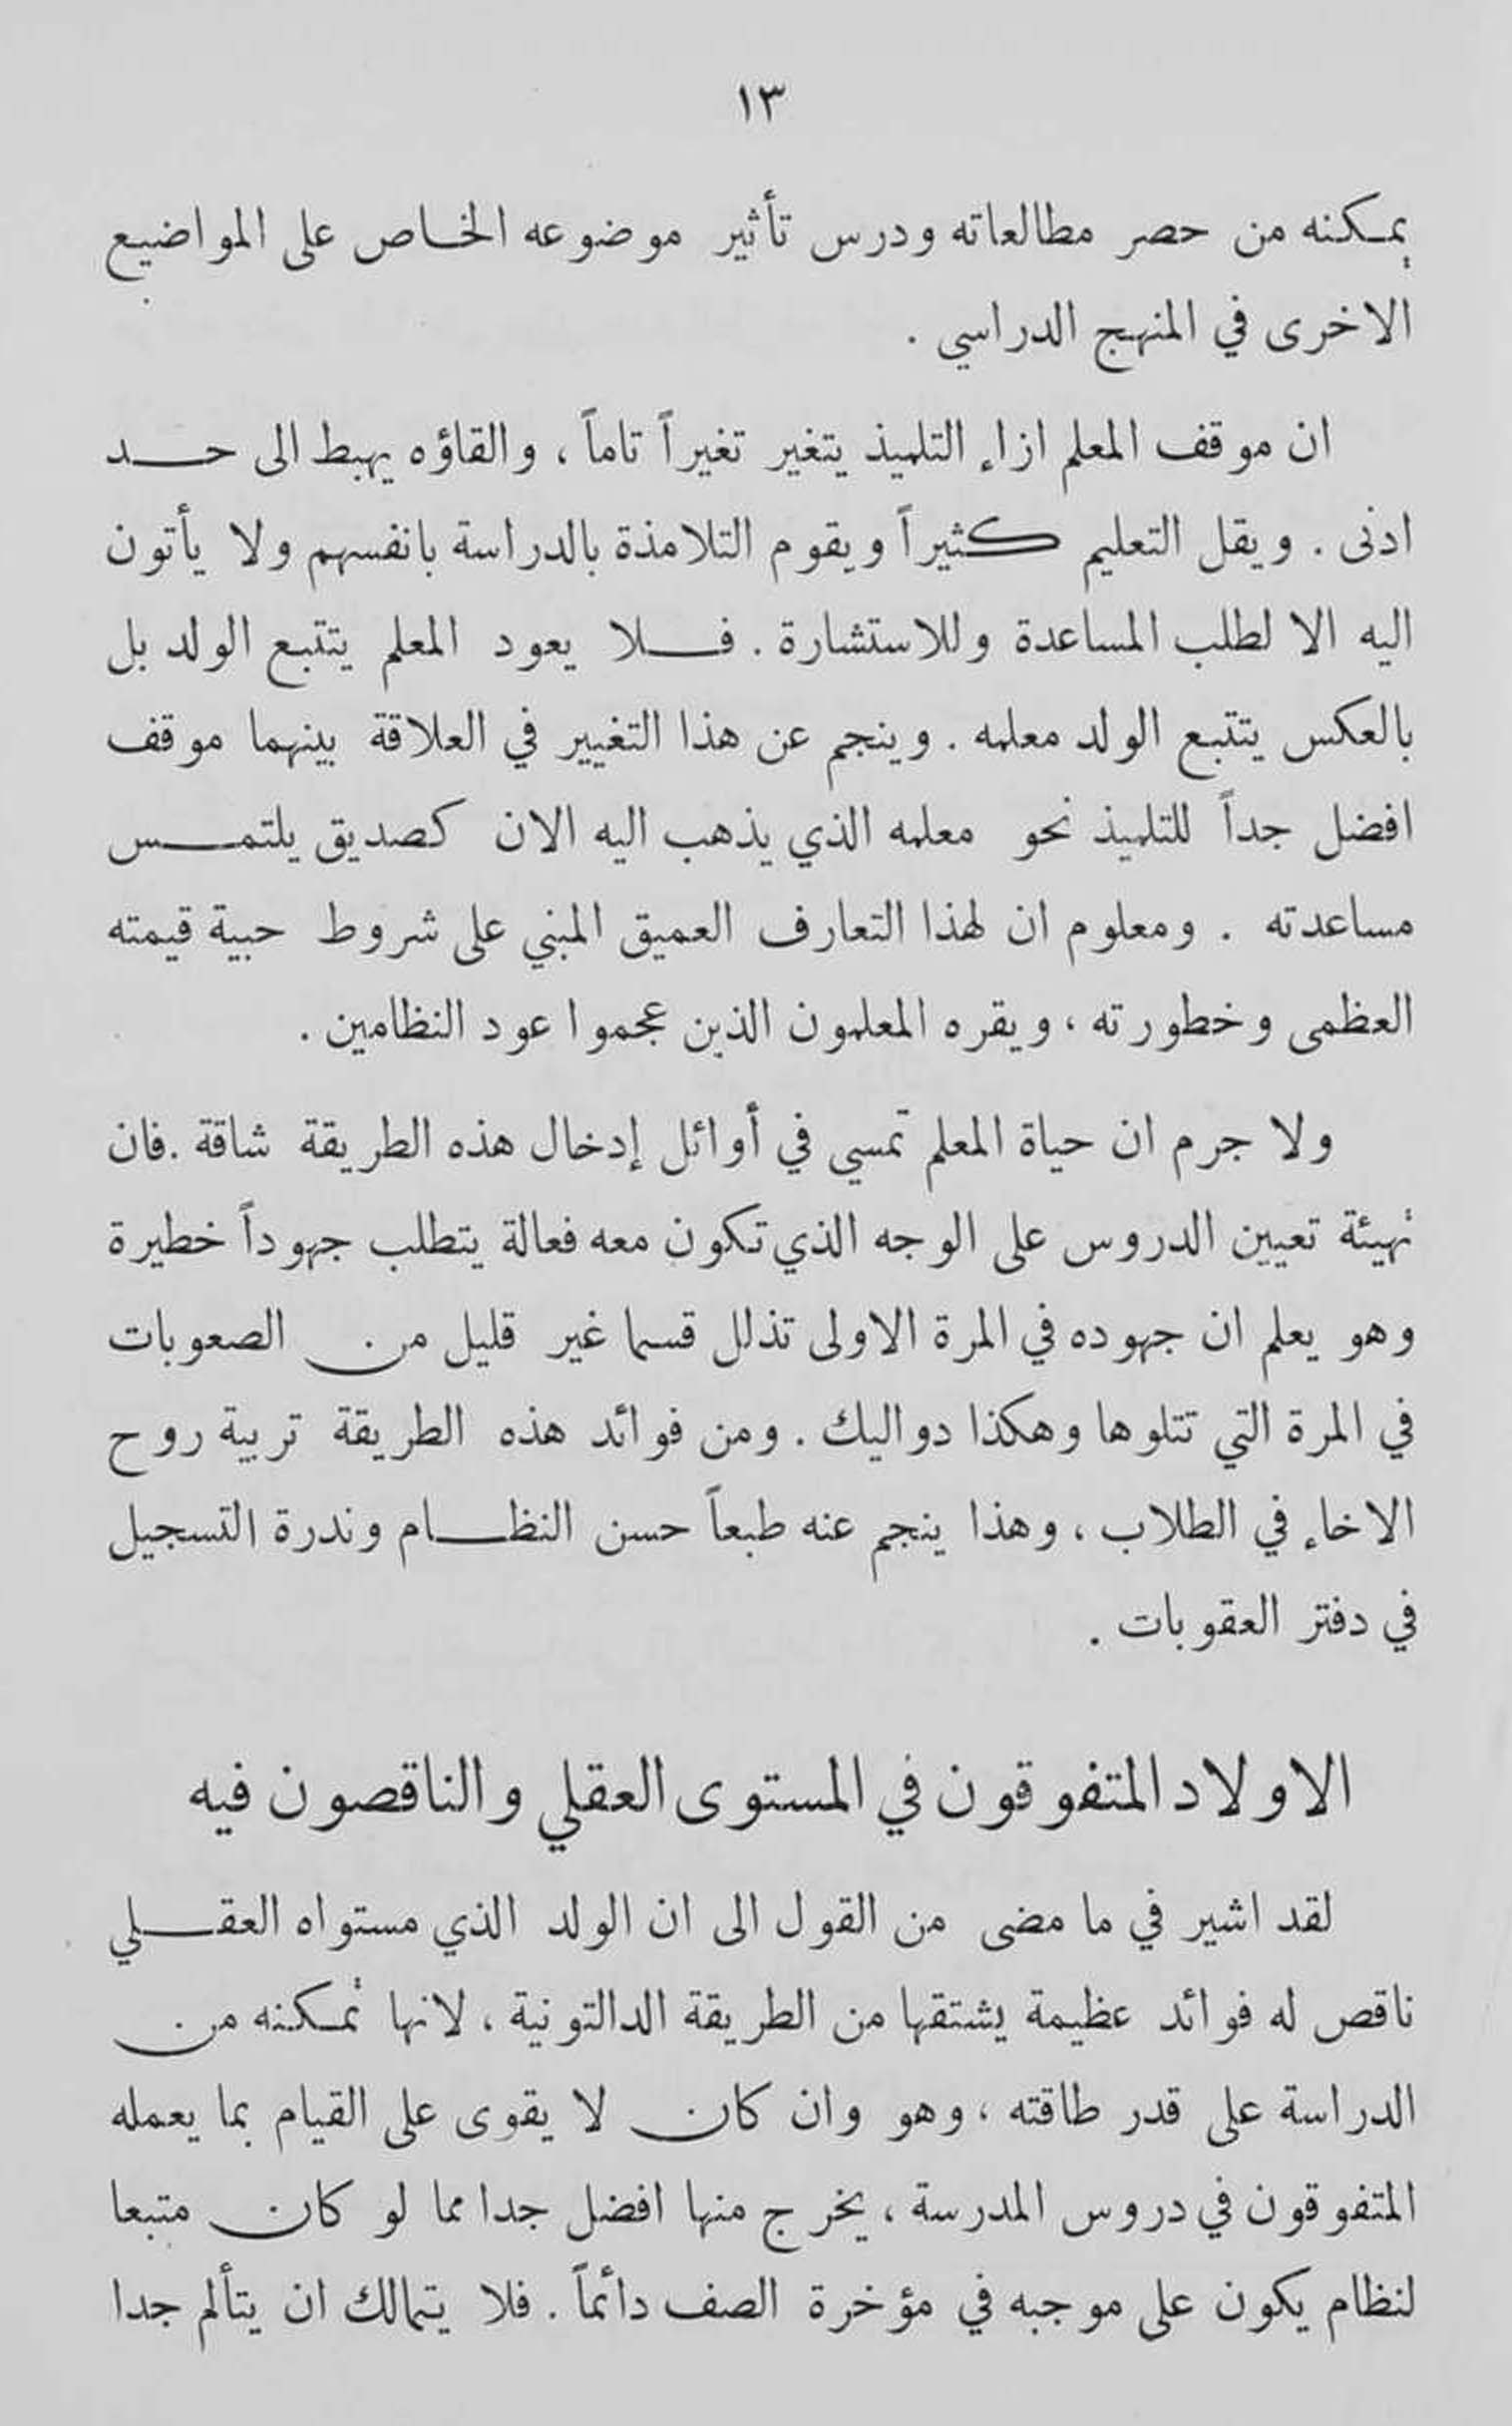 ١٣
يمكنه من حصر مطالعاته ودرس تأثير موضوعه الخاص على المواضيع
الاخرى في المنهج الدراسي .
ان موقف المعلم ازاء التلميذ يتغير تغيراً تاماً ، والقاؤه يهبط الى حد
ادنى . ويقل التعليم كثيراً ويقوم التلامذة بالدراسة بانفسهم ولا يأتون
اليه الا لطلب المساعدة وللاستشارة . فلا يعود المعلم يتتبع الولد بل
بالعكس يتتبع الولد معلمه . وينجم عن هذا التغيير في العلاقة بينهما موقف
افضل جداً للتلميذ نحو معلمه الذي يذهب اليه الان كصديق يلتمس
مساعدته . ومعلوم ان لهذا التعارف العميق المبني على شروط حبية قيمته
العظمى وخطورته ، ويقره المعلمون الذين عجموا عود النظامين .
ولا جرم ان حياة المعلم تمسي في أوائل إدخال هذه الطريقة شاقة . فان
تهيئة تعيين الدروس على الوجه الذي تكون معه فعالة يتطلب جهوداً خطيرة
وهو يعلم ان جهوده في المرة الاولى تذلل قسما غير قليل من الصعوبات
في المرة التي تتلوها وهكذا دواليك . ومن فوائد هذه الطريقة تربية روح
الاخاء في الطلاب ، وهذا ينجم عنه طبعاً حسن النظام وندرة التسجيل
في دفتر العقوبات .
الاولاد المتفوقون في المستوى العقلي والناقصون فيه
لقد اشير في ما مضى من القول الى ان الولد الذي مستواه العقلي
ناقص له فوائد عظيمة يشتقها من الطريقة الدالتونية ، لانها تمكنه من
الدراسة على قدر طاقته ، وهو وان كان لا يقوى على القيام بما يعمله
المتفوقون في دروس المدرسة ، يخرج منها افضل جدا مما لو كان متبعا
لنظام يكون على موجبه في مؤخرة الصف دائماً . فلا يتمالك ان يتألم جدا